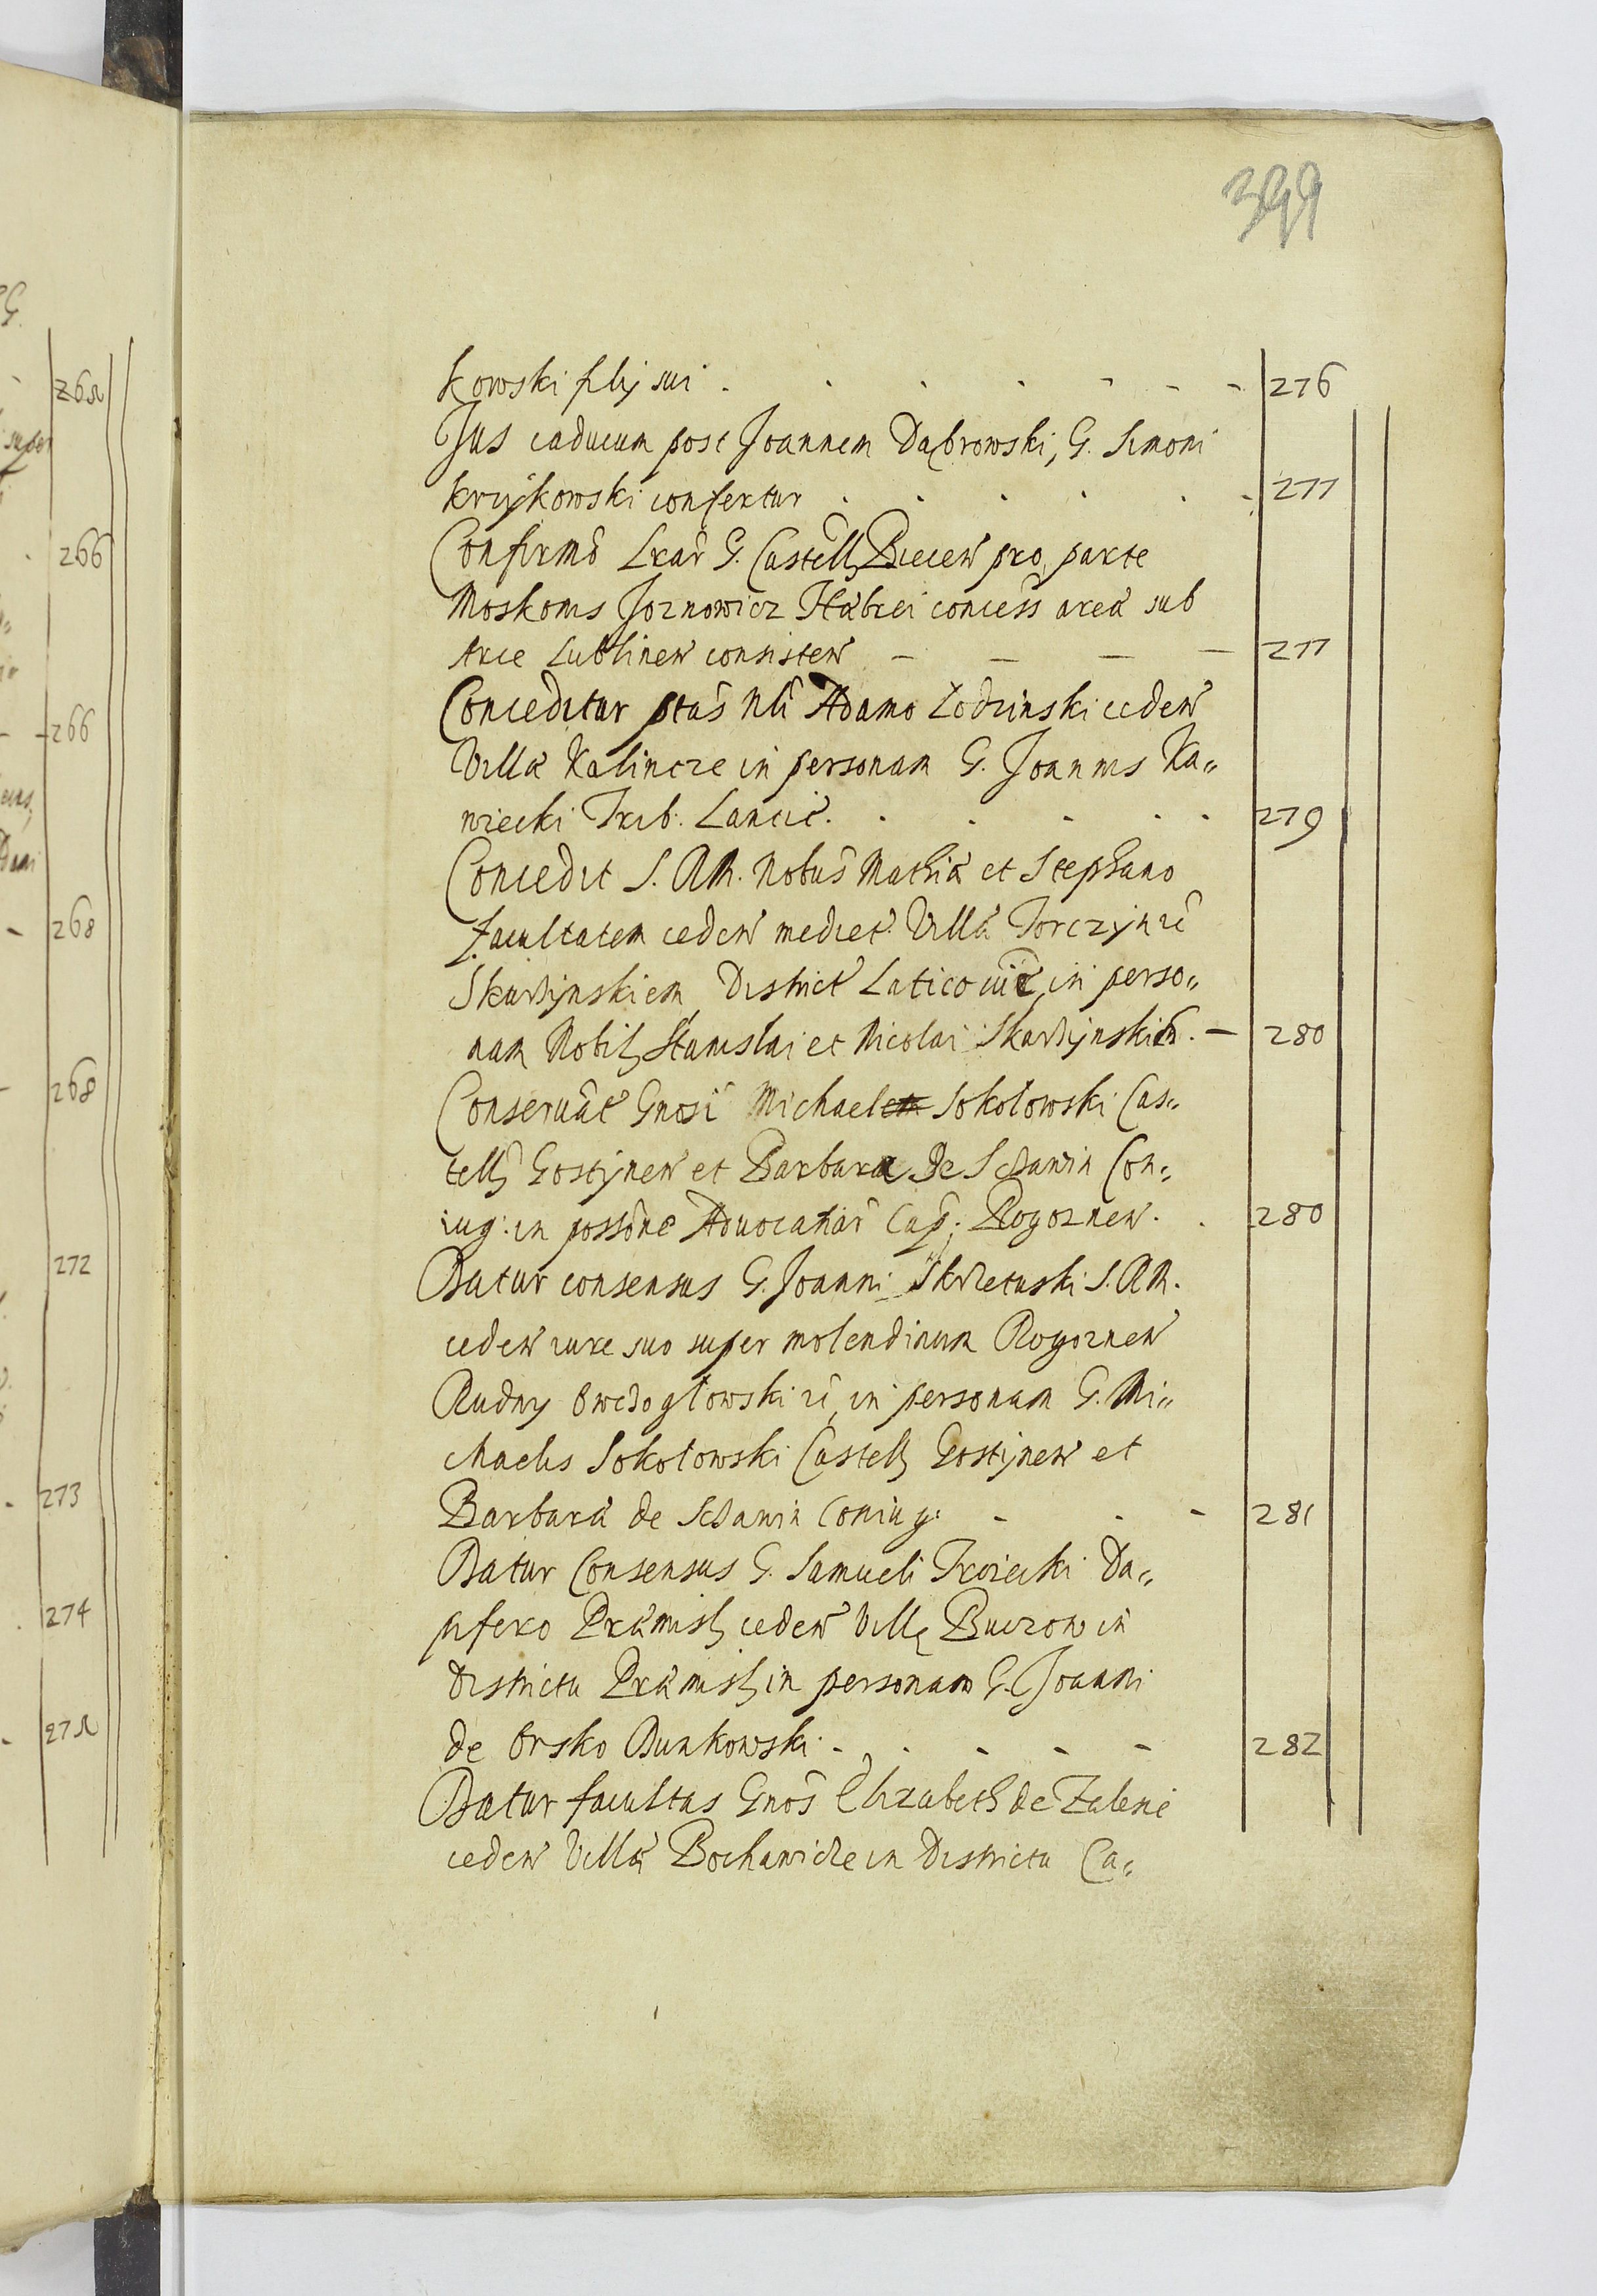 399
kowski filij sui - - - - - - - 276
Jus caducum post Joannem Dąbrowski, G. Simoni
Krzykowski confertur . . . . . . 277
Confirmõ Lrar̃ G. Castell Biecen pro parte
Moskonis Joznowicz Hæbrei concess̃ areæ sub
Arce Lublinen consisten — — — — 277
Conceditur ptãs Nlĩ Adamo Łodzinski ceden
Villæ Kalincze in personam G. Joannis Ka„
wiecki Trib. Lancic̃. . . . . . 279
Concedit S. R. M. Nobus̃ Mathiæ et Stephano
facultatem ceden mediet. Villæ Torczyn zẽ
Skarzynskiem, District Laticouiẽ, in perso„
nam Nobil Stanislai et Nicolai Skarzynskich. — 280
Conseruãt Gnosĩ Michael Sokołowski Cas„
tell Gostynen et Barbara de Sczawin Con„
iug: in possõne Aduocatiar̃ Cap̃: Rogoznen. . 280
Datur consensus G. Joanni Skrzetuski S. R. M.
ceden iure suo super molendinum Rogoznen
Rudny Owczogłowski zẽ, in personam G. Mi„
chaelis Sokołowski Castell Gostynen et
Barbaræ de Sczawin Coniug: - - - 281
Datur Consensus G. Samueli Trojecki Da„
pifero Præmisl ceden Villę Buczow in
Districtu Præmisl in personam G. Joanni
de Orsko Bunkowski - . - - - 282
Datur facultas Gnõs Elizabeth de Zalenie
ceden Villæ Bochanicze in Districtu Ca„
266
266
268
268
272
273
274